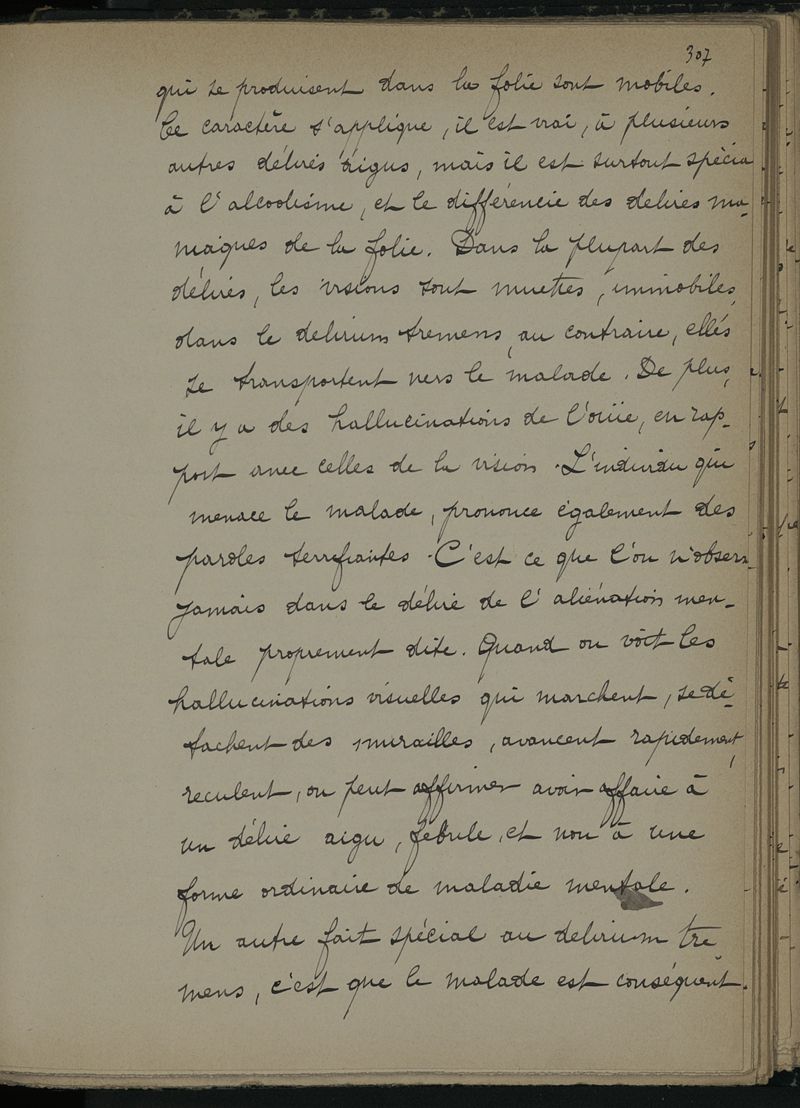 307
qui se produisent dans la folie sont mobiles.
Ce caractère s'applique, il est vrai, à plusieurs
autres délires aigus, mais il est surtout spécia
à l'alcoolisme, et le différencie des delires ma-
niaques de la folie. Dans la plupart des
délires, les visions sont muettes, immobiles,
dans le delirium tremens, au contraire, elles
se transportent vers le malade. De plus,
il y a des hallucinations de l'ouïe, en rap-
port avec celles de la vision. L'individu qui
menace le malade, prononce également des
paroles terrifiantes. C'est ce que l'on n'observ
jamais dans le délire de l'aliénation men-
tale proprement dite. Quand on voit les
hallucinations visuelles qui marchent, se dé-
tachent des murailles, avancent rapidement,
reculent, on peut affirmer avoir affaire à
un délire aigu, febrile, et non à une
forme ordinaire de maladie mentale.
Un autre fait spécial au delirium tre
mens, c'est que le malade est conséquent.